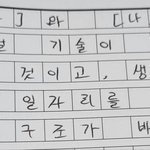 ] 와 [나
기술이
것이고, 생
일자리를
구조가 바